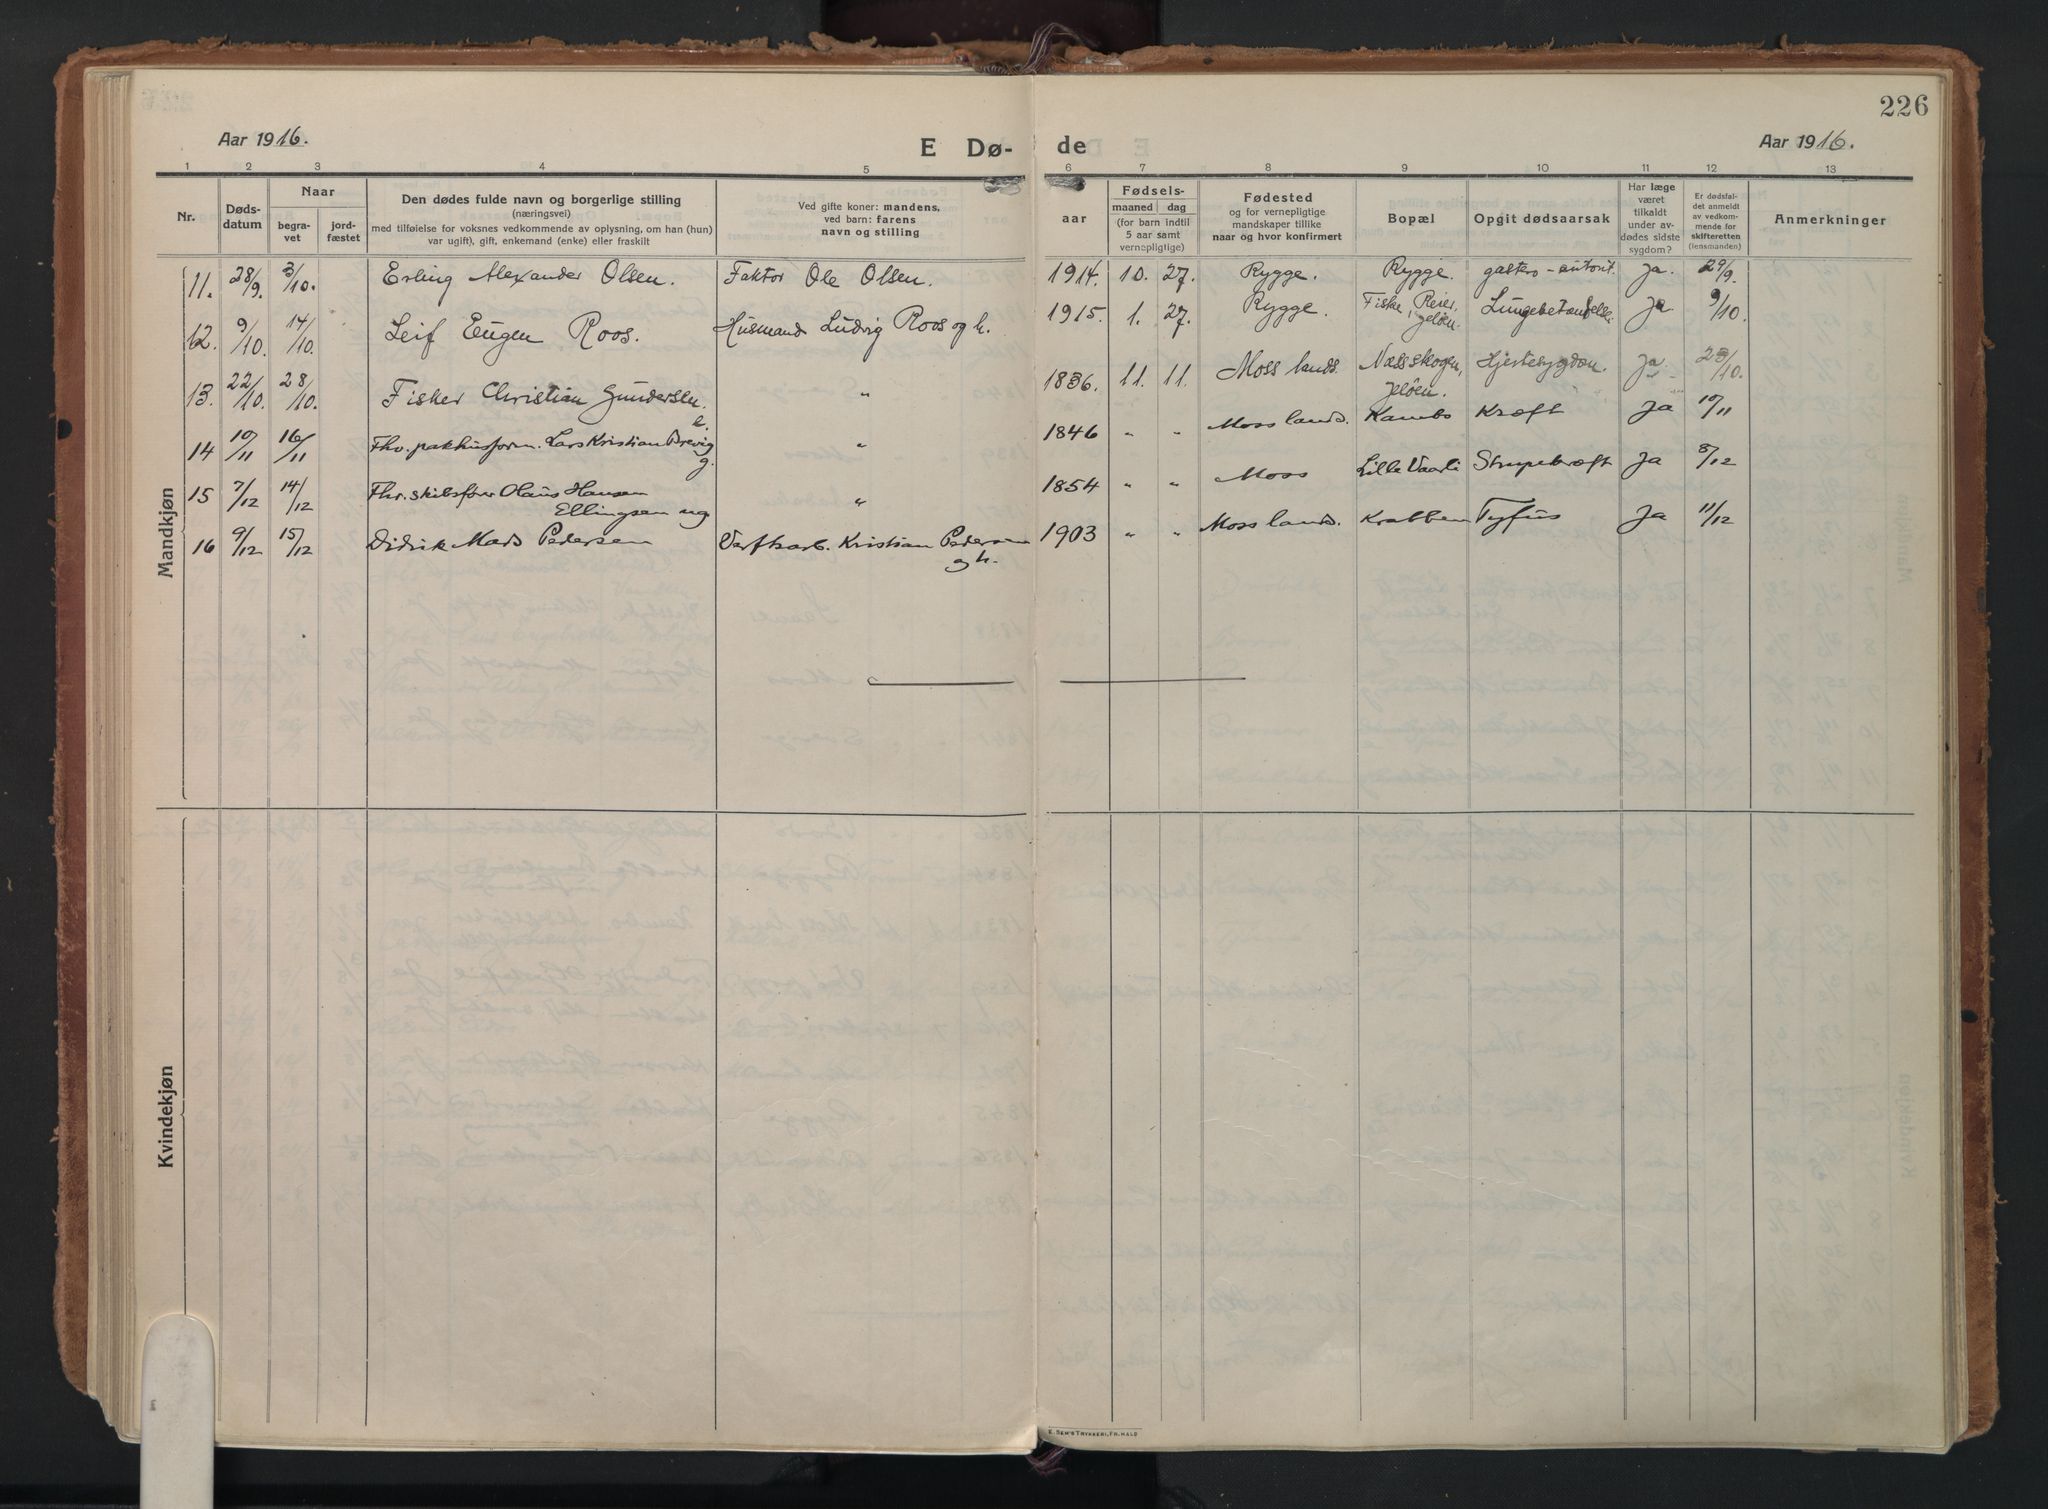 226
Aar 1916.
E Dø-
de
Aar 1916.
1 2 3 4 5 6 7 8 9 10 11 12 13
Nr.
Døds-
datum
Naar
begra-
vet
jord-
fæstet
Den dødes fulde navn og borgerlige stilling
(næringsvei)
med tilføielse for voksnes vedkommende av oplysning, om han (hun)
var ugift), gift, enkemand (enke) eller fraskilt
Ved gifte koner: mandens,
ved barn: farens
navn og stilling
aar
Fødsels-
maaned dag
(for barn indtil
5 aar samt
vernepligtige)
Fødested
og for vernepligtige
mandskaper tillike
naar og hvor konfirmert
Bopæl
Opgit dødsaarsak
Har læge
været
tilkaldt
under av-
dødes sidste
sygdom?
Er dødsfal-
det anmeldt
av vedkom-
mende for
skifteretten
(lensmanden)
Anmerkninger
Mandkjøn
11. 28/9. 3/10. Erling Alexander Olsen. Faktor Ole Olsen. 1914. 10. 27. Rygge. Rygge. gastro-enterit. Ja. 29/9.
12. 9/10. 14/10. Leif Eugen Roos. Husmand Ludvig Roos og h. 1915. 1. 27. Rygge. Fiske, Reier, Jeløen. Ja 9/10.
13. 22/10. 28/10. Fisker Christian Gundersen. " 1836. 11. 11. Moss lands. Næsskogen, Jeløen. Hjertesygdom. Ja. 23/10.
e.
14 10/11 16/11 Fhv. pakhusform. Lars Kristian Brevig " 1846 " " Moss lands. Kambo Kræft Ja 10/11
g.
15 7/12 14/12 Fhv. skibsfører Olaus Hansen " 1854 " " Moss Lille Vaarli Strupekræft Ja 8/12
Ellingsen ug
16 9/12 15/12 Didrik Mads Pedersen Verftsarb. Kristian Pedersen 1903 " " Moss lands. Krabben Tyfus Ja 11/12
og h.
Kvindekjøn
E. SEM'S TRYKKERI, FR. HALD